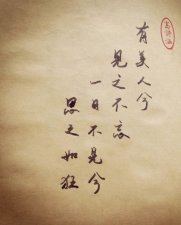 有美人兮
見之不忘
一日不見兮
思之如狂